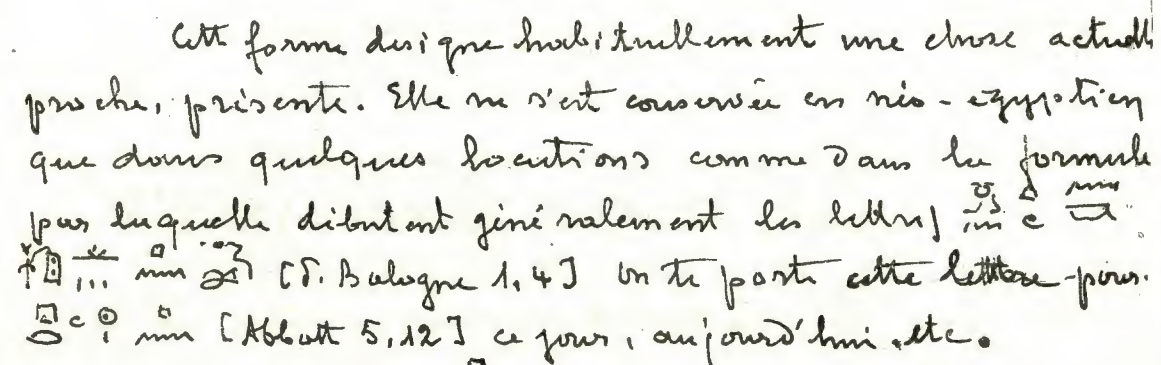 Cette forme designe habituellement une chose actuelle
proche, présente. Elle ne s'est conservée en néo-egyptien
que dans quelques locutions comme dans la formule
par laquelle débutent généralement les lettres
[P. Bologne 1, 4] on te porte cette lettre pour.
[Abbott 5, 12] ce jour, aujourd'hui, etc.